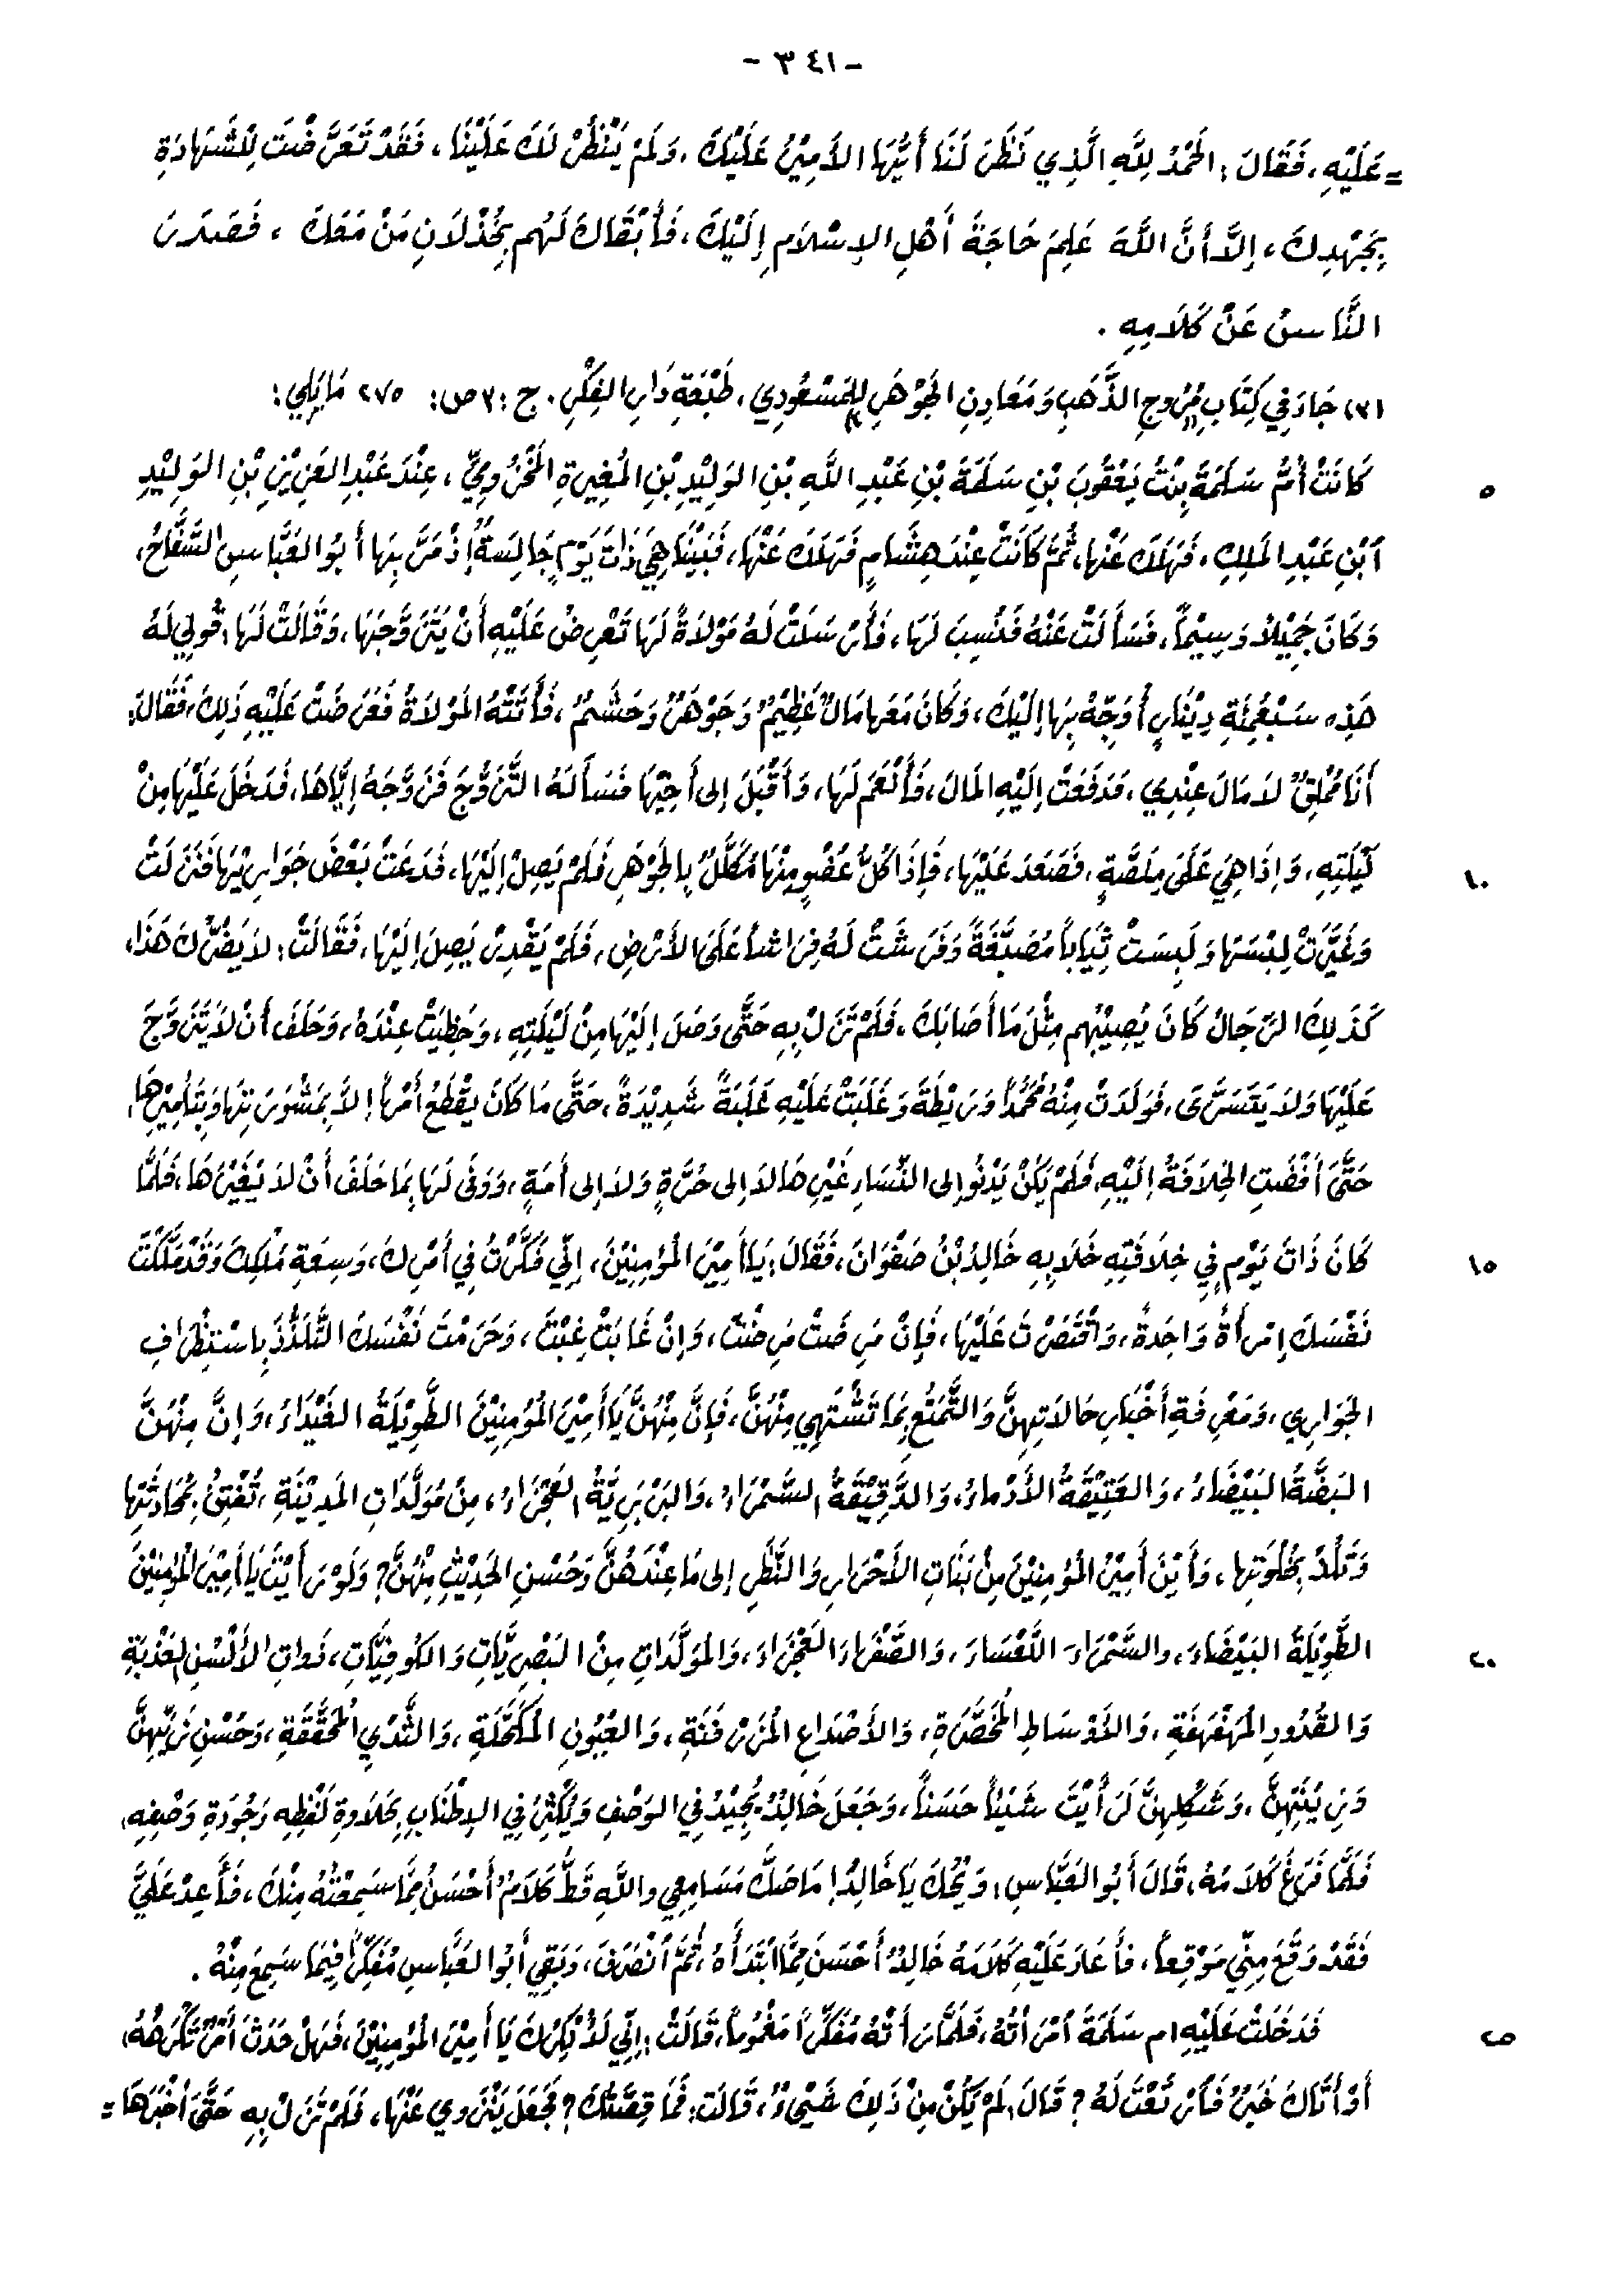 - ٣٤١ -
= عَلَيْهِ، فَقَالَ: الحَمْدُ لِلَّهِ الَّذِي نَظَرَ لَنَا أَيُّهَا الأَمِيْرُ عَلَيْكَ، وَلَمْ يَنْظُرْ لَكَ عَلَيْنَا، فَقَدْ تَعَرَّضْتَ لِلشَّهَادَةِ
بِجَهْدِكَ، إِلَّا أَنَّ اللَّهَ عَلِمَ حَاجَةَ أَهْلِ الإِسْلَامِ إِلَيْكَ، فَأَبْقَاكَ لَهُم بِخُذْلَانِ مَنْ مَعَكَ، فَصَدَرَ
النَّاسُ عَنْ كَلَامِهِ.
(٣) جَاءَ فِي كِتَابِ مُرُوجِ الذَّهَبِ وَمَعَادِنِ الجَوْهَرِ لِلْمَسْعُودِي، طَبْعَةِ دَارِ الفِكْرِ. ج: ٣ ص: ٢٧٥ مَايَلِي:
كَانَتْ أُمُّ سَلَمَةَ بِنْتُ يَعْقُوبَ بْنِ سَلَمَةَ بْنِ عَبْدِ اللَّهِ بْنِ الوَلِيْدِ بْنِ المُغِيرَةِ المَخْزُومِيِّ، عِنْدَ عَبْدِ العَزِيْزِ بْنِ الوَلِيْدِ ٥
ابْنِ عَبْدِ المَلِكِ، فَهَلَكَ عَنْهَا، ثُمَّ كَانَتْ عِنْدَ هِشَامٍ فَهَلَكَ عَنْهَا، فَبَيْنَا هِيَ ذَاتَ يَوْمٍ جَالِسَةٌ إِذْ مَرَّ بِهَا أَبُو العَبَّاسِ السَّفَّاحُ،
وَكَانَ جَمِيْلاً وَسِيْماً، فَسَأَلَتْ عَنْهُ فَنُسِبَ لَهَا، فَأَرْسَلَتْ لَهُ مَوْلَاةً لَهَا تَعْرِضُ عَلَيْهِ أَنْ يَتَزَوَّجَهَا، وَقَالَتْ لَهَا: قُولِي لَهُ
هَذِهِ سَبْعُمِئَةِ دِيْنَارٍ أُوَجِّهُ بِهَا إِلَيْكَ، وَكَانَ مَعَهَا مَالٌ عَظِيْمٌ وَجَوْهَرٌ وَحَشَمٌ، فَأَتَتْهُ المَوْلَاةُ فَعَرَضَتْ عَلَيْهِ ذَلِكَ، فَقَالَ:
أَنَا مُمْلِقٌ لَا مَالَ عِنْدِي، فَدَفَعَتْ إِلَيْهِ المَالَ، فَأَنْعَمَ لَهَا، وَأَقْبَلَ إِلى أَخِيْهَا فَسَأَلَهُ التَّزَوُّجَ فَزَوَّجَهُ إِيَّاهَا، فَدَخَلَ عَلَيْهَا مِنْ
لَيْلَتِهِ، وَإِذَا هِيَ عَلَى مِنَصَّةٍ، فَصَعَدَ عَلَيْهَا، فَإِذَا كُلُّ عُضْوٍ مِنْهَا مُكَلَّلٌ بِالجَوْهَرِ فَلَمْ يَصِلْ إِلَيْهَا، فَدَعَتْ بَعْضَ جَوَارِيْهَا فَنَزَلَتْ ١٠
وَغَيَّرَتْ لِبْسَهَا وَلَبِسَتْ ثِيَاباً مُصَبَّغَةً وَفَرَشَتْ لَهُ فِرَاشاً عَلَى الأَرْضِ، فَلَمْ يَقْدِرْ يَصِلَ إِلَيْهَا، فَقَالَتْ: لَا يَضُرُّكَ هَذَا،
كَذَلِكَ الرِّجَالُ كَانَ يُصِيْبُهُم مِثْلَ مَا أَصَابَكَ، فَلَمْ تَزَلْ بِهِ حَتَّى وَصَلَ إِلَيْهَا مِنْ لَيْلَتِهِ، وَحَظِيَتْ عِنْدَهُ، وَحَلَفَ أَنْ لَا يَتَزَوَّجَ
عَلَيْهَا وَلَا يَتَسَرَّى، فَوَلَدَتْ مِنْهُ مُحَمَّداً وَرَيْطَةَ وَغَلَبَتْ عَلَيْهِ غَلَبَةً شَدِيْدَةً، حَتَّى مَا كَانَ يَقْطَعُ أَمْراً إِلَّا بِمَشُوَرَتِهَا وَبِتَأْمِيْرِهَا،
حَتَّى أَفْضَتِ الخِلَافَةُ إِلَيْهِ، فَلَمْ يَكُنْ يَدْنُو إِلى النِّسَاءِ غَيْرِهَا لَا إِلى حُرَّةٍ وَلَا إِلى أَمَةٍ، وَوَفَى لَهَا بِمَا حَلَفَ أَنْ لَا يُغَيِّرَهَا، فَلَمَّا
كَانَ ذَاتَ يَوْمٍ فِي خِلَافَتِهِ خَلَا بِهِ خَالِدُ بْنُ صَفْوَانَ، فَقَالَ: يَا أَمِيْرَ المُؤْمِنِيْنَ، إِنِّي فَكَّرْتُ فِي أَمْرِكَ، وَسِعَةِ مُلْكِكَ وَقَدْ مَلَّكْتَ ١٥
نَفْسَكَ اِمْرَأَةً وَاحِدَةً، وَاقْتَصَرْتَ عَلَيْهَا، فَإِنْ مَرِضَتْ مَرِضْتَ، وَإِنْ غَابَتْ غِبْتَ، وَحَرَمْتَ نَفْسَكَ التَّلَذُّذَ بِاسْتِظْرَافِ
الجَوَارِي، وَمَعْرِفَةِ أَخْبَارِ حَالَاتِهِنَّ وَالتَّمَتُّعِ بِمَا تَشْتَهِي مِنْهُنَّ، فَإِنَّ مِنْهُنَّ يَا أَمِيْرَ المُؤْمِنِيْنَ الطَّوِيْلَةُ الغَيْدَاءُ، وَإِنَّ مِنْهُنَّ
البَضَّةُ البَيْضَاءُ، وَالعَتِيْقَةُ الأَدْمَاءُ، وَالدَّقِيْقَةُ السَّمْرَاءُ، وَالبَرْبَرِيَّةُ العَجْزَاءُ، مِنْ مُوَلَّدَاتِ المَدِيْنَةِ، تُفْتِنُ بِمُحَادَثَتِهَا
وَتَلُذُّ بِخُلْوَتِهَا، وَأَيْنَ أَمِيْرُ المُؤْمِنِيْنَ مِنْ بَنَاتِ الأَحْرَارِ وَالنَّظَرِ إِلى مَا عِنْدَهُنَّ وَحُسْنِ الحَدِيْثِ مِنْهُنَّ؟ وَلَوْ رَأَيْتَ يَا أَمِيْرَ المُؤْمِنِيْنَ
الطَّوِيْلَةَ البَيْضَاءَ، وَالسَّمْرَاءَ اللَّعْسَاءَ، وَالصَّفْرَاءَ العَجْزَاءَ، وَالمُوَلَّدَاتِ مِنَ البَصْرِيَّاتِ وَالكُوفِيَّاتِ، ذَوَاتِ الأَلْسُنِ العَذْبَةِ ٢٠
وَالقُدُودِ المُهَفْهَفَةِ، وَالأَوْسَاطِ المُخَصَّرَةِ، وَالأَصْدَاغِ المُزَرْفَنَةِ، وَالعُيُونِ المُكَحَّلَةِ، وَالثُّدِيِّ المُحَقَّقَةِ، وَحُسْنِ زِيِّهِنَّ
وَزِيْنَتِهِنَّ، وَشَكْلِهِنَّ لَرَأَيْتَ شَيْئاً حَسَناً، وَجَعَلَ خَالِدٌ يُجِيْدُ فِي الوَصْفِ وَيُكْثِرُ فِي الإِطْنَابِ بِحَلَاوَةِ لَفْظِهِ وَجُودَةِ وَصْفِهِ،
فَلَمَّا فَرَغَ كَلَامُهُ، قَالَ أَبُو العَبَّاسِ: وَيْحُكَ يَا خَالِدُ! مَا صَكَّ مَسَامِعِي وَاللَّهِ قَطُّ كَلَامٌ أَحْسَنُ مِمَّا سَمِعْتُهُ مِنْكَ، فَأَعِدْ عَلَيَّ
فَقَدْ وَقَعَ مِنِّي مَوْقِعاً، فَأَعَادَ عَلَيْهِ كَلَامَهُ خَالِدٌ أَحْسَنَ مِمَّا ابْتَدَأَهُ، ثُمَّ انْصَرَفَ، وَبَقِيَ أَبُو العَبَّاسِ مُفَكِّراً فِيْمَا سَمِعَ مِنْهُ.
فَدَخَلَتْ عَلَيْهِ ام سَلَمَةَ امْرَأَتُهُ، فَلَمَّا رَأَتْهُ مُفَكِّراً مَغْمُوماً، قَالَتْ: إِنِّي لَأُنْكِرُكَ يَا أَمِيْرَ المُؤْمِنِيْنَ، فَهَلْ حَدَثَ أَمْرٌ تَكْرَهُهُ، ٢٥
أَوْ أَتَاكَ خَبَرٌ فَارْتَعْتَ لَهُ؟ قَالَ: لَمْ يَكُنْ مِنْ ذَلِكَ شَيْءٌ، قَالَت: فَمَا قِصَّتُكَ؟ فَجَعَلَ يَنْزَوِي عَنْهَا، فَلَمْ تَزَلْ بِهِ حَتَّى أَخْبَرَهَا =